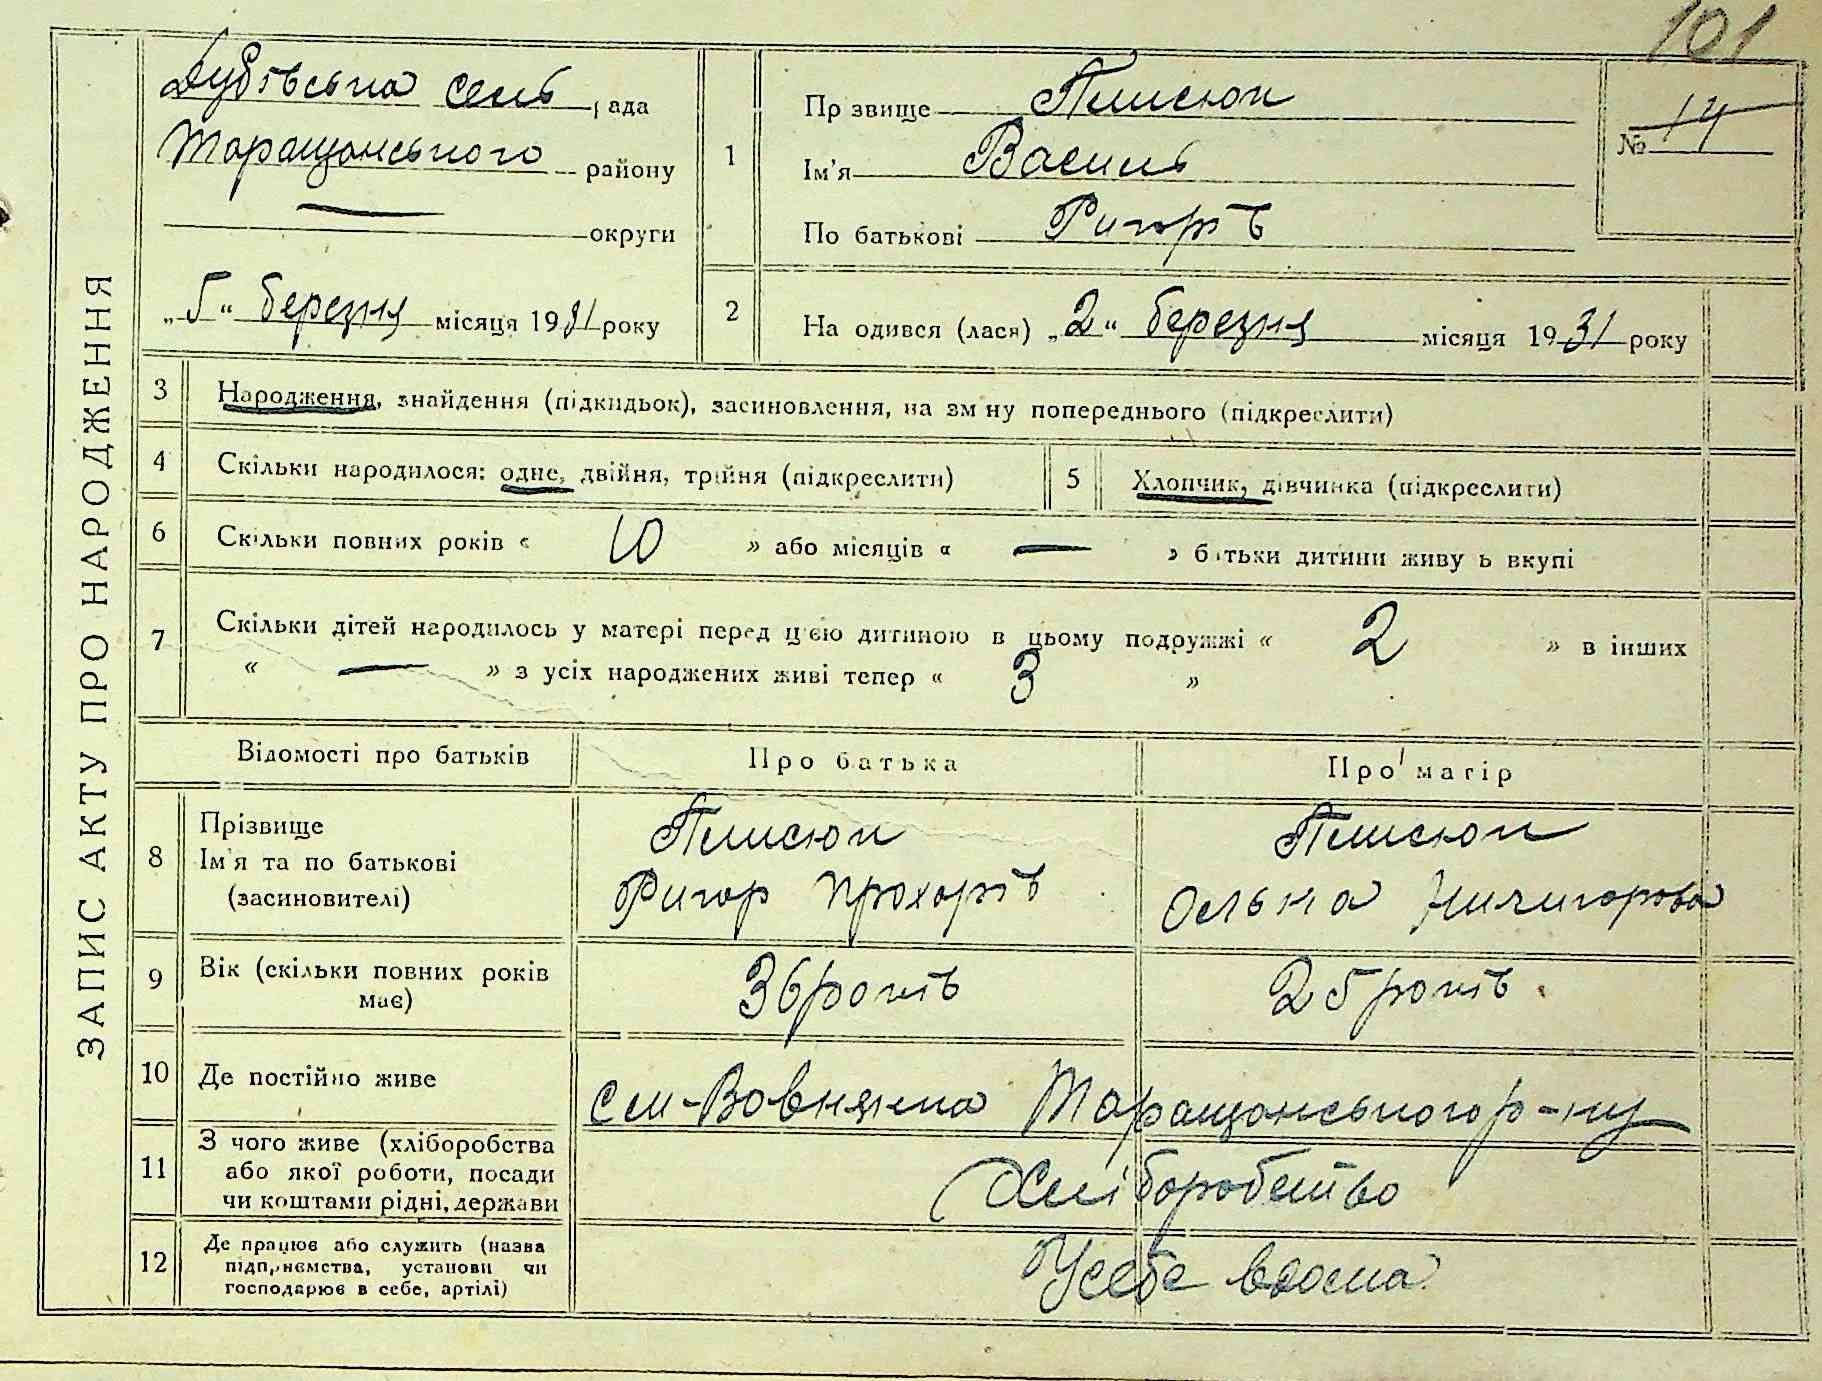 101
ЗАПИС АКТУ ПРО НАРОДЖЕННЯ
Дубівська сель рада
Таращанського району
— округи
„5“ березня місяця 1931 року
1
Прізвище Плисюк
Ім'я Василь
По батькові Ригорів
№ 14
2
Народився (лася) „2“ березня місяця 1931 року
3 Народження, знайдення (підкидьок), засиновлення, на зміну попереднього (підкреслити)
4 Скільки народилося: одне, двійня, трійня (підкреслити)
5 Хлопчик, дівчинка (підкреслити)
6 Скільки повних років « 10 » або місяців « — » батьки дитини живуть вкупі
7 Скільки дітей народилось у матері перед цією дитиною в цьому подружжі « 2 » в інших
« — » з усіх народжених живі тепер « 3 »
Відомості про батьків Про батька Про матір
8 Прізвище
Ім'я та по батькові
(засиновителі)
Плисюк
Ригор Прохорів
Плисюк
Олька
9 Вік (скільки повних років
має)
36 років
25 років
10 Де постійно живе
с. Вовнянка Таращанського р-ну
11 З чого живе (хліборобства
або якої роботи, посади
чи коштами рідні, держави
Хліборобство
12 Де працює або служить (назва
підприємства, установи чи
господарює в себе, артілі)
У себе вдома